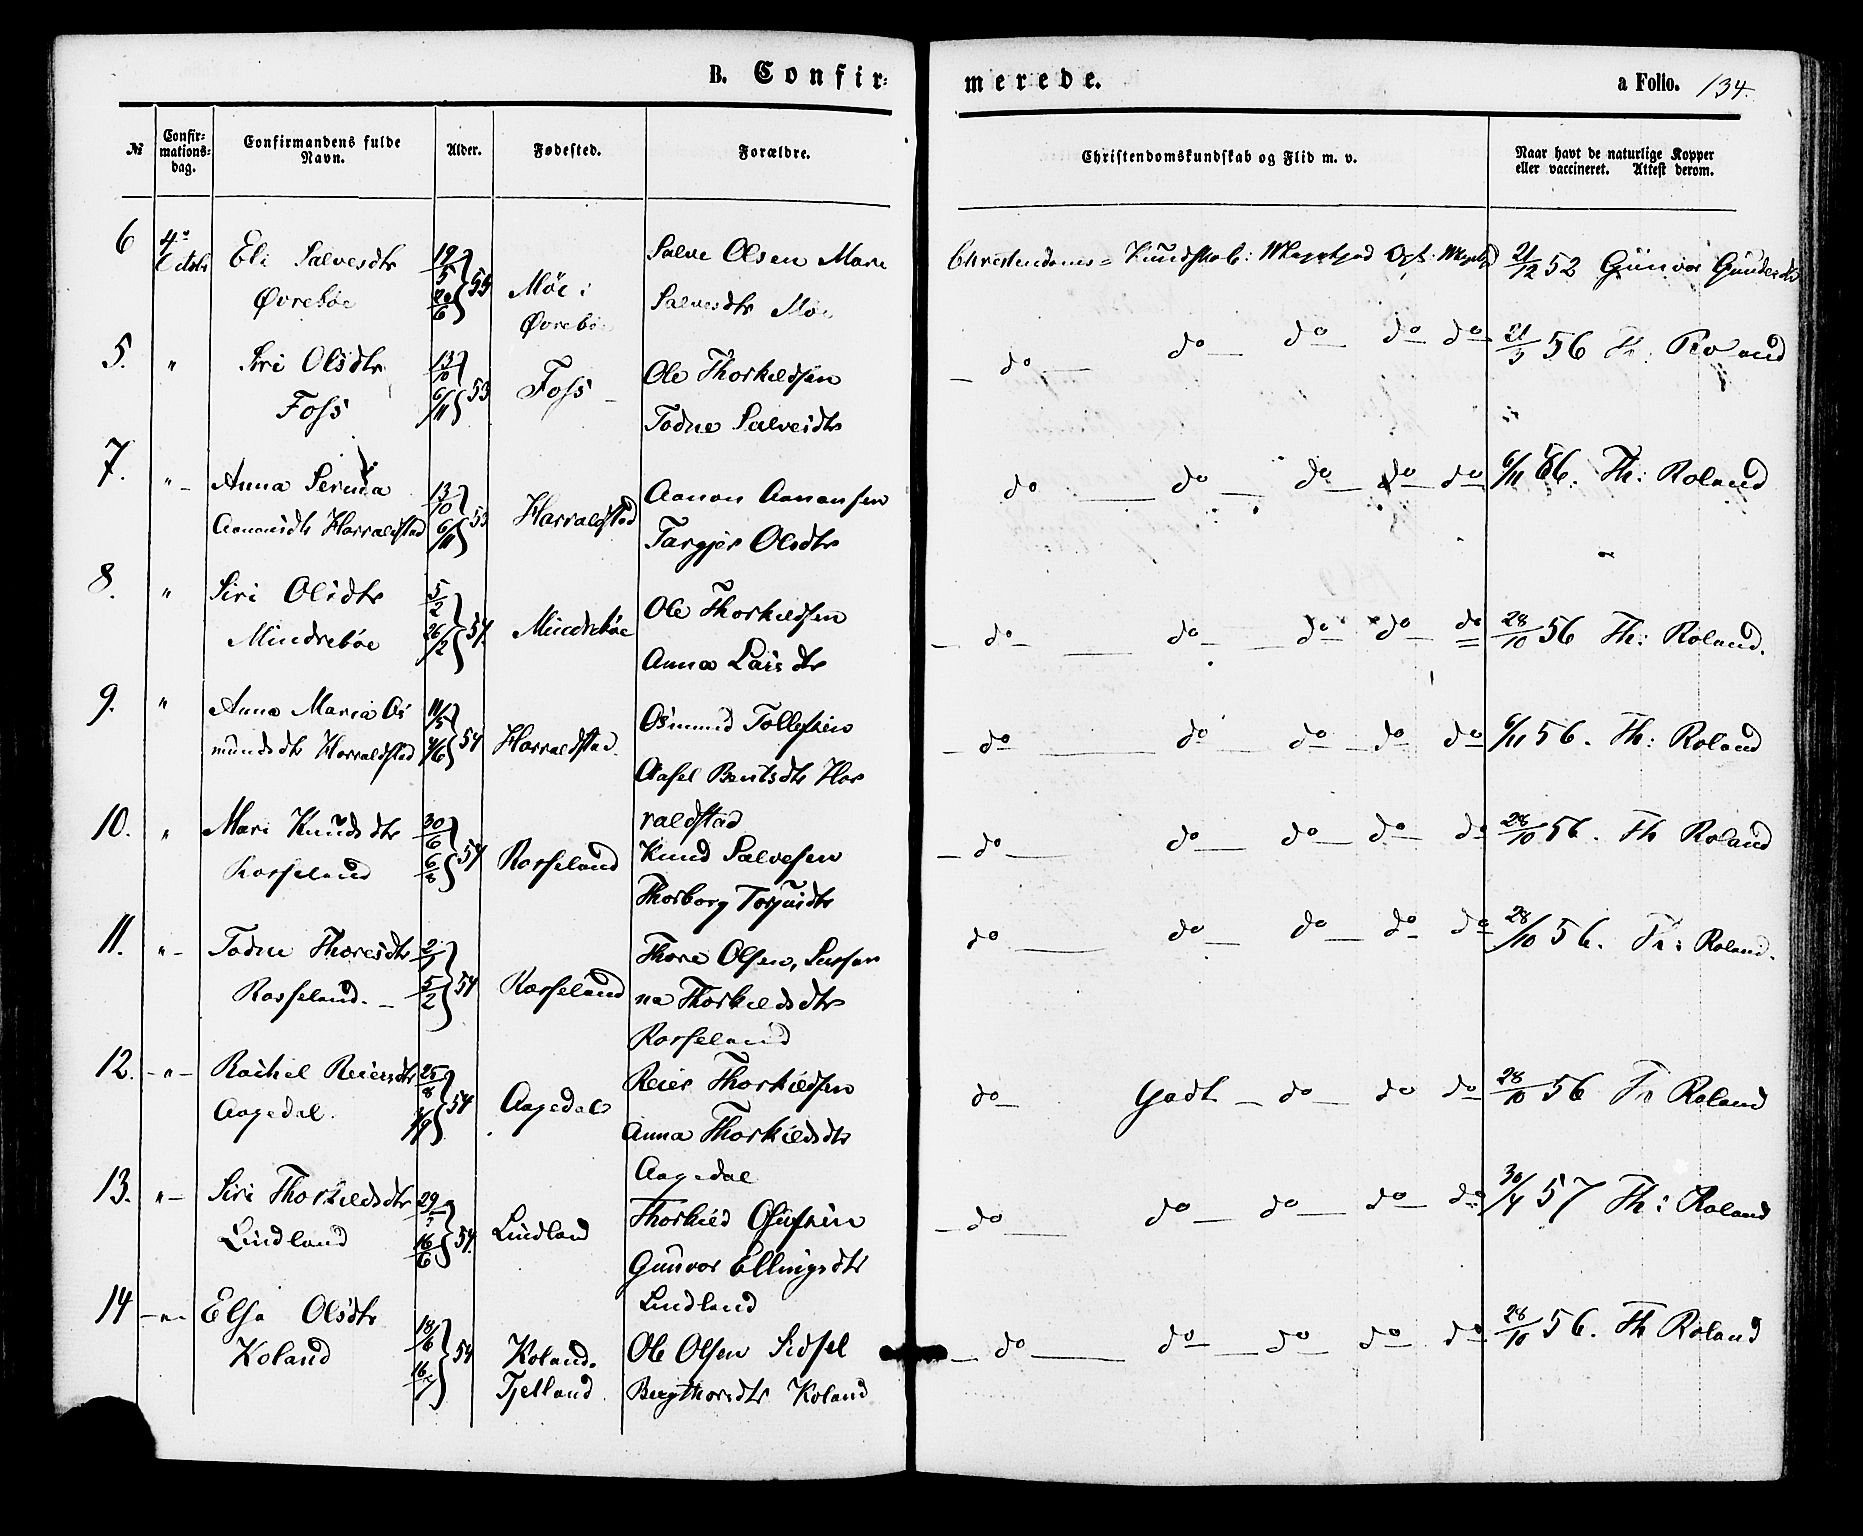 B. Confir-
merede.
a Folio. 134.
№
Confir-
mations-
dag.
Confirmandens fulde
Navn.
Alder.
Fødested.
Forældre.
Christendomskundskab og Flid m. v.
Naar havt de naturlige Kopper
eller vaccineret. Attest derom.
6 4de Eli Salvesdtr 19/5 Salve Olsen Mari Christendoms= Kundskab: Megetgod 21/12 52 Gunvor
Octob Øvrebøe 55 Møe i Salvesdtr Møe
Øvrebøe
5. " Siri Olsdtr 13/10 Foss Ole Thorkildsen do do do do do 56 Th: Roland
Foss 6/11 53 Todne Salvesdtr
7. " Anna Serina 13/10 Harraldstad Aanon Aanonsen do do do do do 6/11 56. Th: Roland
Aanonsdtr Harraldstad 6/11 53 Targjer Olsdtr
8. " Siri Olsdtr 5/2 Mindrebøe Ole Thorkildsen do do do do do 28/10 56 Th: Roland.
Mindrebøe 26/2 54. Anna Larsdtr
9. " Anna Maria Os 11/5 Harraldstad. Osmund Tollefsen do do do do do 6/11 56. Th: Roland
mundsdtr Harraldstad 54 Aasel Bentsdtr Har
raldstad
10. " Mari Knudsdtr 30/6 Rosseland Knud Salvesen do do do do do 28/10 56. Th Roland
Rosseland 6/8 54 Thorborg
11. " Todne Thoresdtr Rosseland Thore Olsen, Susan do do do do do 28/10 56. Th: Roland.
Rosseland. 5/2 54 na Thorkildsdtr
Rosseland
12. " Rachel Reiersdtr 25/8 Aagedal Reier Thorkildsen do Godt do do do 28/10 56 Th Roland
Aagedal. 54 Anna Thorkildsdtr
Aagedal
13. " Siri Thorkildsdtr Lindland Thorkild Osufsen do do do do do 30/4 57 Th: Roland
Lindland 16/6 54. Gunvor Ellingsdtr
Lindland
14 " Elsa Olsdtr 18/6 Koland. Ole Olsen Sidsel do do do do do 28/10 56. Th Roland
Koland 16/7 54 Fjelland Bergthorsdtr Koland